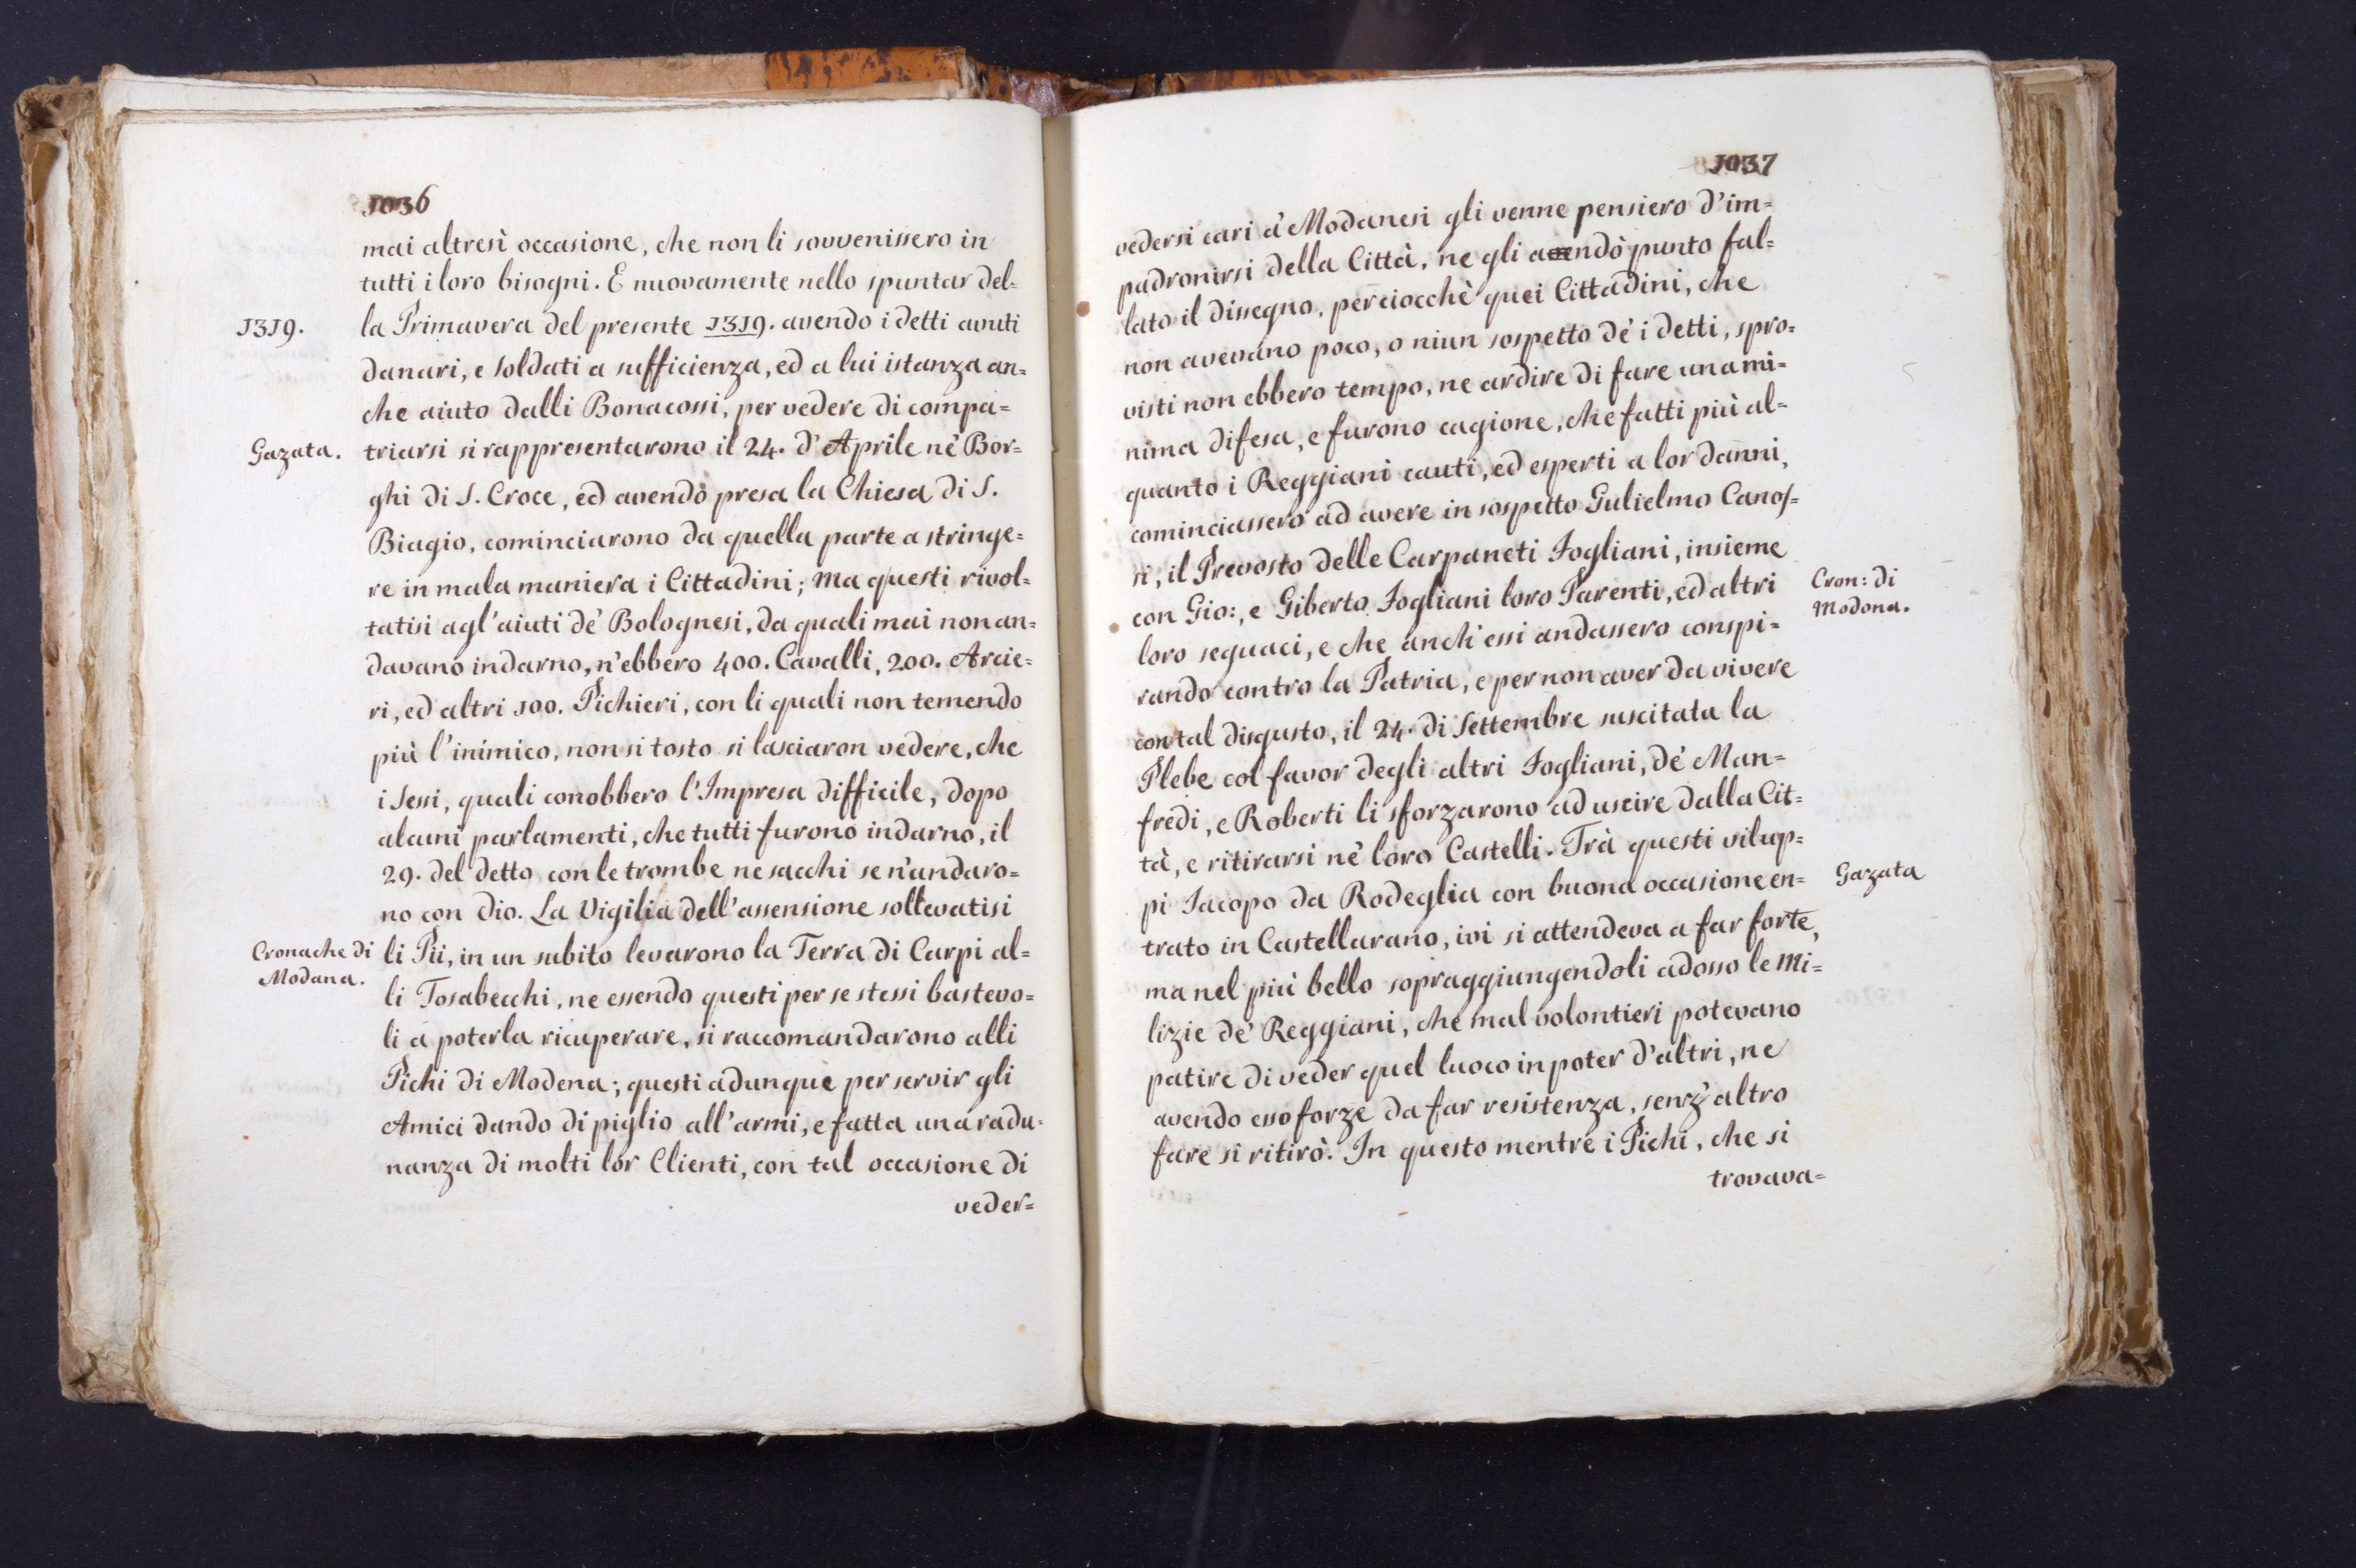 1036
mai altresì occasione, che non li sovvenissero in
tutti i loro bisogni. E nuovamente nello spuntar del=
1319.
la Primavera del presente 1319. avendo i detti avuti
danari, e soldati a sufficienza, ed a lui istanza an=
che aiuto dalli Bonacossi, per vedere di compa=
Gazata.
triarsi si rappresentarono il 24. d'Aprile ne' Bor=
ghi di S. Croce, ed avendo presa la Chiesa di S.
Biagio, cominciarono da quella parte a stringe=
re in mala maniera i Cittadini; Ma questi rivol=
tatisi agl'aiuti de' Bolognesi, da quali mai non an=
davano indarno, n'ebbero 400. Cavalli, 200. Arcie=
ri, ed altri 100. Pichieri, con li quali non temendo
più l'inimico, non si tosto si lasciaron vedere, che
i Sessi, quali conobbero l'Impresa difficile, dopo
alcuni parlamenti, che tutti furono indarno, il
29. del detto con le trombe ne sacchi se n'andaro=
no con Dio. La Vigilia dell'assensione sollevatisi
Cronache di
Modana.
li Pii, in un subito levarono la Terra di Carpi al=
li Tosabecchi, ne essendo questi per se stessi bastevo=
li a poterla ricuperare, si raccomandarono alli
Pichi di Modena; questi adunque per servir gli
Amici dando di piglio all'armi, e fatta una radu=
nanza di molti lor Clienti, con tal occasione di
veder=
1037
vedersi cari a' Modanesi gli venne pensiero d'im=
padronirsi della Città, ne gli avendo punto fal=
lato il dissegno, perciocchè quei Cittadini, che
non avevano poco, o niun sospetto de' i detti, spro=
visti non ebbero tempo, ne ardire di fare una mi=
nima difesa, e furono cagione, che fatti più al=
quanto i Reggiani cauti, ed esperti a lor danni,
cominciassero ad avere in sospetto Gulielmo Canos=
si, il Prevosto delle Carpaneti Fogliani, insieme
con Gio:, e Giberto Fogliani loro Parenti, ed altri
Cron: di
Modona.
loro seguaci, e che anch'essi andassero conspi=
rando contro la Patria, e per non aver da vivere
con tal disgusto, il 24. di Settembre suscitata la
Plebe col favor degli altri Fogliani, de' Man=
fredi, e Roberti li sforzarono ad uscire dalla Cit=
tà, e ritirarsi ne' loro Castelli. Trà questi vilup=
pi Iacopo da Rodeglia con buona occasione en=
Gazata
trato in Castellarano, ivi si attendeva a far forte,
ma nel più bello sopraggiungendoli adosso le Mi=
lizie de' Reggiani, che mal volontieri potevano
patire di veder quel luoco in poter d'altri, ne
avendo esso forze da far resistenza, senz'altro
fare si ritirò. In questo mentre i Pichi, che si
trovava=